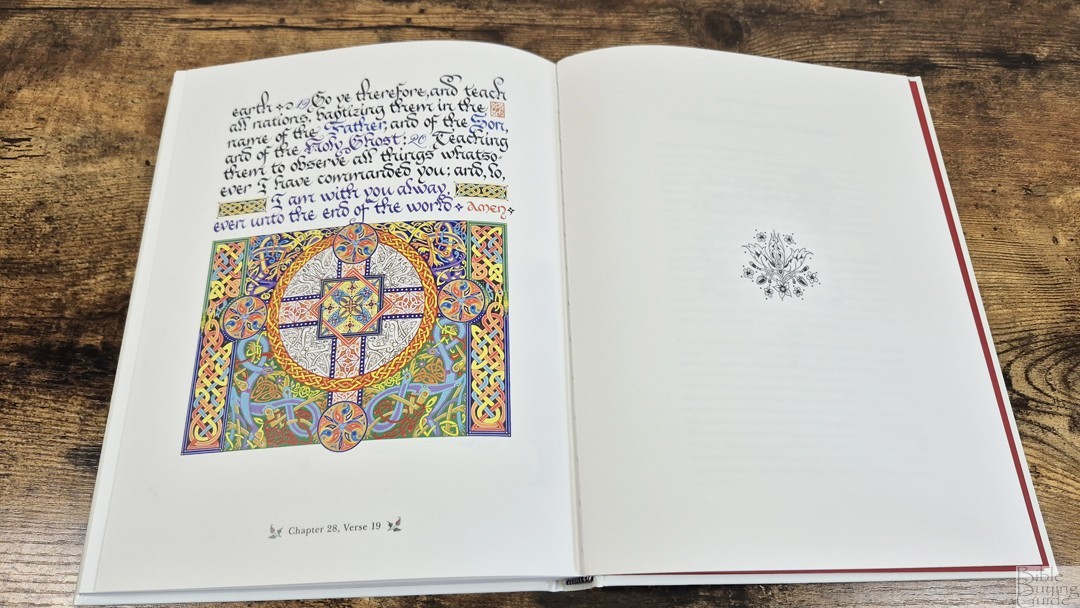 earth 19 Go ye therefore, and teach
all nations, baptizing them in the
name of the Father, and of the Son,
and of the Holy Ghost: 20 Teaching
them to observe all things whatso-
ever I have commanded you: and, lo,
I am with you alway,
even unto the end of the world Amen
Chapter 28, Verse 19
Bible
Buying
Guide